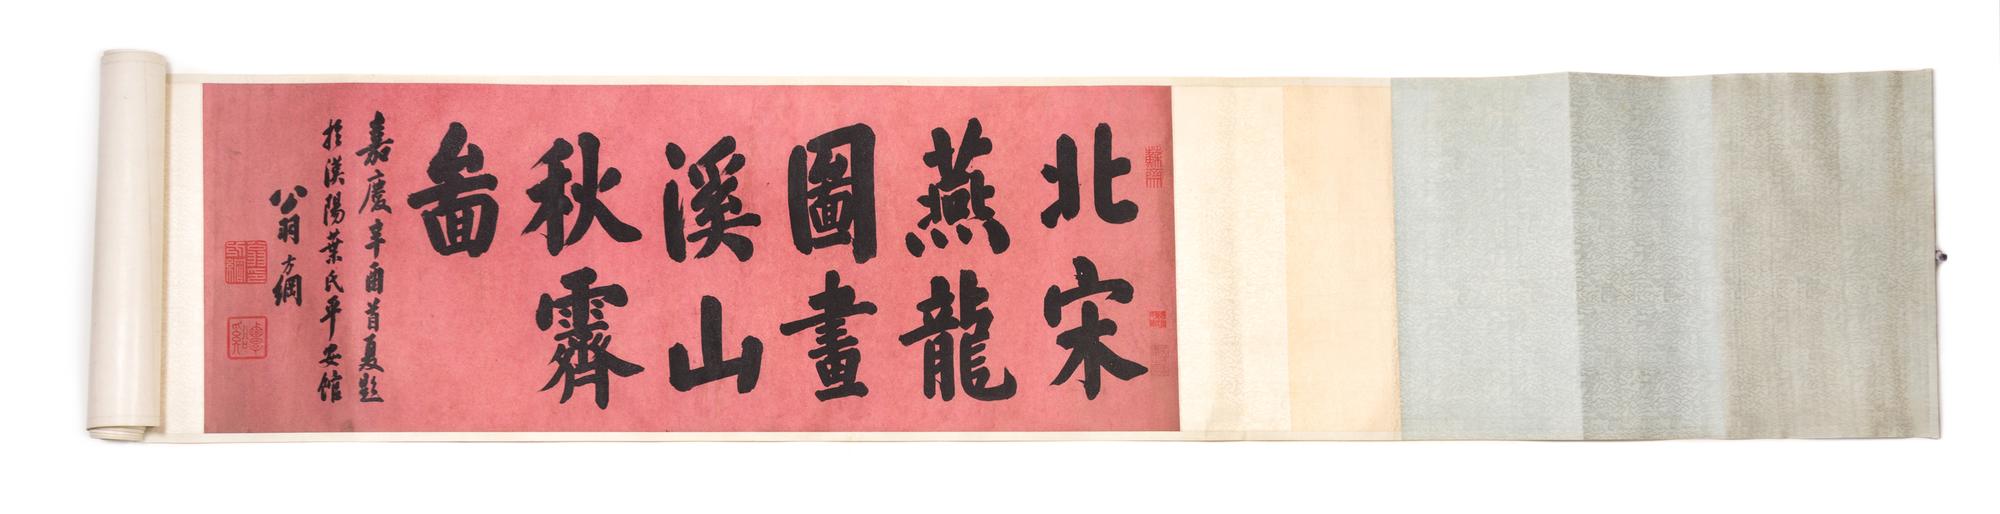 北宋
燕龍
圖畫
溪山
秋霽
啚
嘉慶辛酉首夏題
於漢陽葉氏平安館
翁方綱
蘇齋